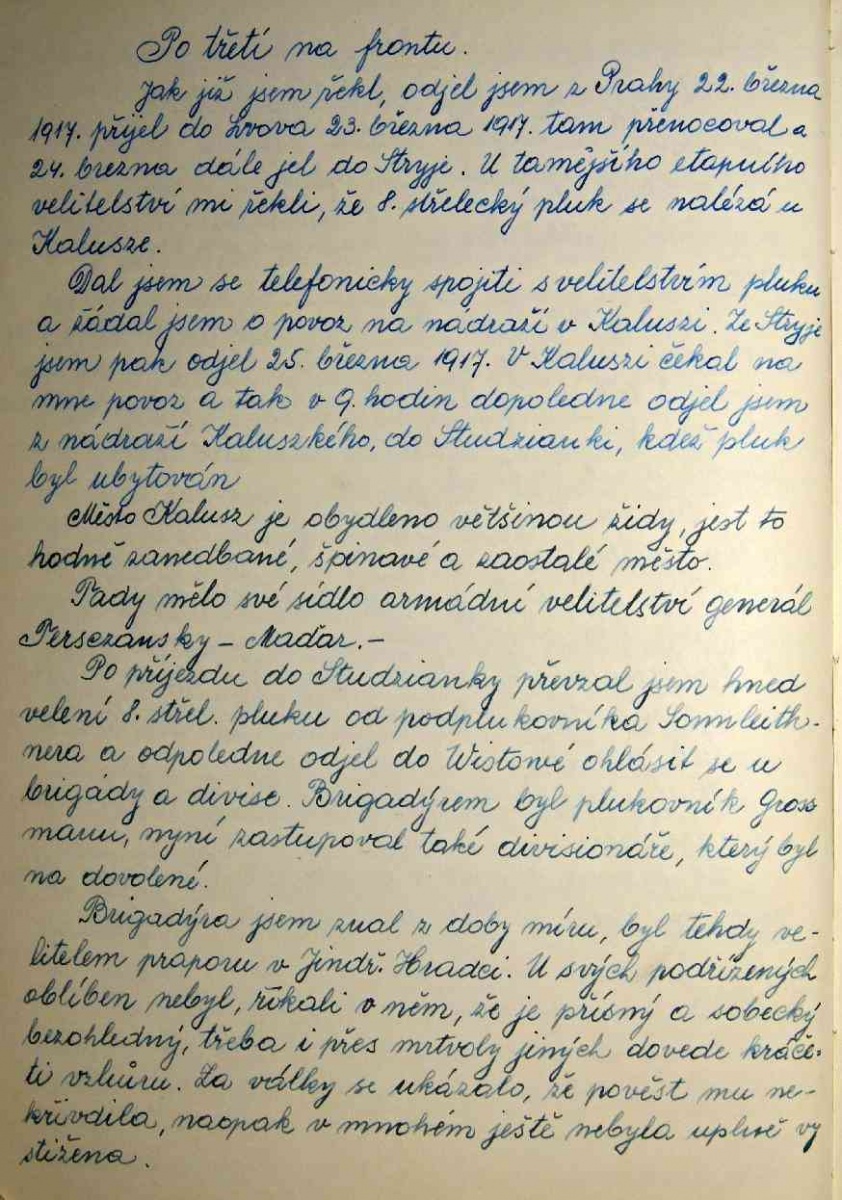 Po třetí na frontu.
Jak již jsem řekl, odjel jsem z Prahy 22. března
1917. přijel do Lvova 23. března 1917. tam přenocoval a
24. března dále jel do Stryje. U tamějšího etapního
velitelství mi řekli, že 8. střelecký pluk se nalézá u
Kalusze.
Dal jsem se telefonicky spojiti s velitelstvím pluku
a žádal jsem o povoz na nádraží v Kaluszi. Ze Stryje
jsem pak odjel 25. března 1917. V Kaluszi čekal na
mne povoz a tak v 9. hodin dopoledne odjel jsem
z nádraží Kaluszkého, do Studzianki, kdež pluk
byl ubytován
Město Kalusz je obydleno většinou židy, jest to
hodně zanedbané, špinavé a zaostalé město.
Tady mělo své sídlo armádní velitelství generál
Persczansky – Maďar. –
Po příjezdu do Studzianky převzal jsem hned
velení 8. střel. pluku od podplukovníka Sonnleith-
nera a odpoledne odjel do Wistowé ohlásit se u
brigády a divise. Brigadýrem byl plukovník Gross
mann, nyní zastupoval také divisionáře, který byl
na dovolené.
Brigadýra jsem znal z doby míru, byl tehdy ve-
litelem praporu v Jindř. Hradci. U svých podřízených
oblíben nebyl, říkali v něm, že je přísný a sobecký
bezohledný, třeba i přes mrtvoly jiných dovede kráče-
ti vzhůru. Za války se ukázalo, že pověst mu ne-
křivdila, naopak v mnohém ještě nebyla uplně vy
stižena.